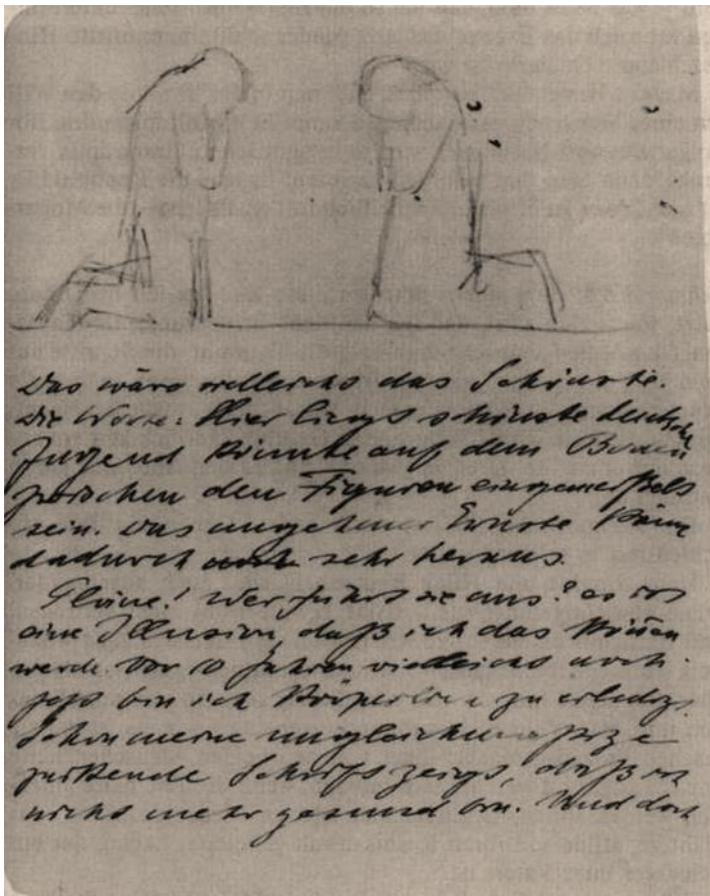 Das wäre vielleicht das Schönste.
Die Worte: Hier liegt schönste deutsche
Jugend könnte auf dem Boden
zwischen den Figuren eingemeißelt
sein. Das ungeheuer Ernste käme
dadurch sehr heraus.
Pläne! Wer führt sie aus? es ist
eine Illusion, daß ich das können
werde. Vor 10 Jahren vielleicht noch.
jetzt bin ich körperlich zu erledigt.
Schon meine
zuckende Schrift zeigt, daß ich
nicht mehr gesund bin. Und doch